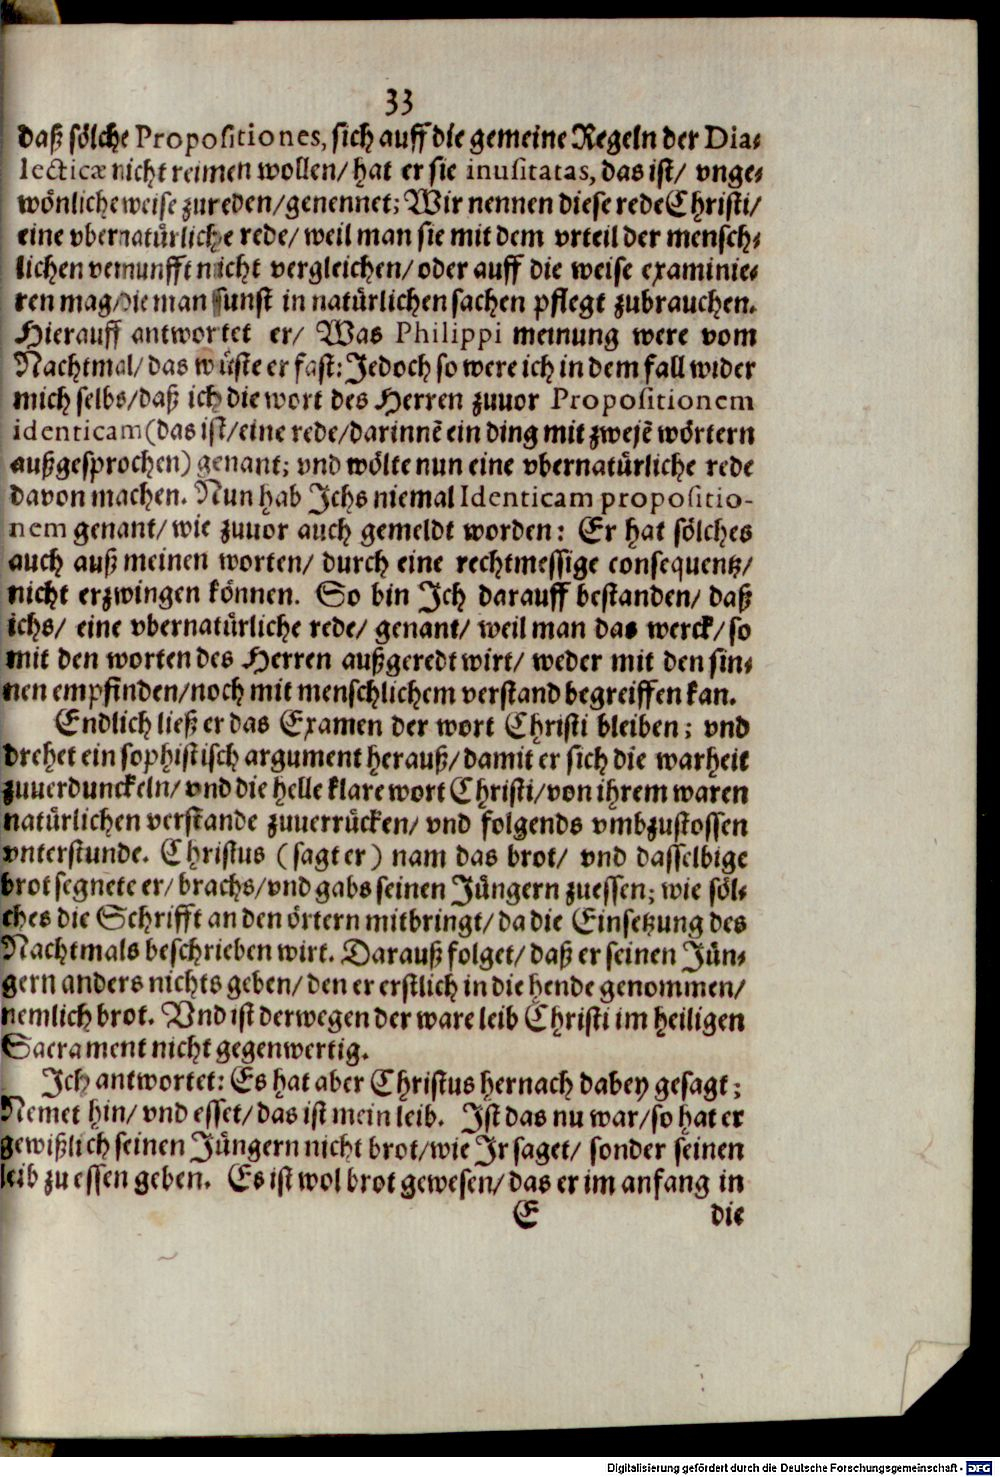 33
daß sölche Propositiones, sich auff die gemeine Regeln der Dia-
lecticæ nicht reimen wollen/ hat er sie inusitatas, das ist/ vnge-
wönliche weise zureden/ genennet; Wir nennen diese rede Christi/
eine vbernatürliche rede/ weil man sie mit dem vrteil der mensch-
lichen vernunfft nicht vergleichen/ oder auff die weise examinie-
ren mag/ die man sunst in natürlichen sachen pflegt zubrauchen.
Hierauff antwortet er/ Was Philippi meinung were vom
Nachtmal/ das wüste er fast: Jedoch so were ich in dem fall wider
mich selbs/ daß ich die wort des Herren zuuor Propositionem
identicam (das ist/ eine rede/ darinnē ein ding mit zwejē wörtern
außgesprochen) genant; vnd wölte nun eine vbernatürliche rede
davon machen. Nun hab Jchs niemal Identicam propositio-
nem genant/ wie zuuor auch gemeldt worden: Er hat sölches
auch auß meinen worten/ durch eine rechtmessige consequentz/
nicht erzwingen können. So bin Jch darauff bestanden/ daß
ichs/ eine vbernatürliche rede/ genant/ weil man das werck/ so
mit den worten des Herren außgeredt wirt/ weder mit den sin-
nen empfinden/ noch mit menschlichem verstand begreiffen kan.
Endlich ließ er das Examen der wort Christi bleiben; vnd
drehet ein sophistisch argument herauß/ damit er sich die warheit
zuuerdunckeln/ vnd die helle klare wort Christi/ von ihrem waren
natürlichen verstande zuuerrücken/ vnd folgends vmbzustossen
vnterstunde. Christus (sagt er) nam das brot/ vnd dasselbige
brot segnete er/ brachs/ vnd gabs seinen Jüngern zuessen; wie söl-
ches die Schrifft an den örtern mitbringt/ da die Einsetzung des
Nachtmals beschrieben wirt. Darauß folget/ daß er seinen Jün-
gern anders nichts geben/ den er erstlich in die hende genommen/
nemlich brot. Vnd ist derwegen der ware leib Christi im heiligen
Sacrament nicht gegenwertig.
Jch antwortet: Es hat aber Christus hernach dabey gesagt;
Nemet hin/ vnd esset/ das ist mein leib. Jst das nu war/ so hat er
gewißlich seinen Jüngern nicht brot/ wie Jr saget/ sonder seinen
leib zu essen geben. Es ist wol brot gewesen/ das er im anfang in
E die
Digitalisierung gefördert durch die Deutsche Forschungsgemeinschaft - DFG